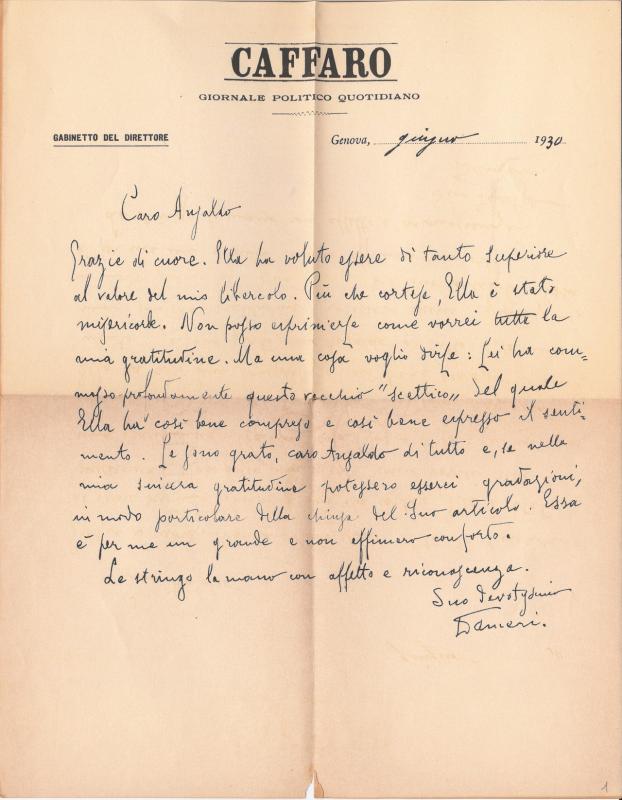 CAFFARO
GIORNALE POLITICO QUOTIDIANO
GABINETTO DEL DIRETTORE
Genova, giugno 1930
Caro Ansaldo
Grazie di cuore. Ella ha voluto essere di tanto superiore
al valore del mio libercolo. Più che cortese, Ella è stato
misericorde. Non posso esprimerle come vorrei tutta la
mia gratitudine. Ma una cosa voglio dirle: Lei ha com=
mosso profondamente questo vecchio "scettico„ del quale
Ella ha così bene compreso e così bene espresso il senti-
mento. Le sono grato, caro Ansaldo di tutto e, se nella
mia sincera gratitudine potessero esserci gradazioni,
in modo particolare della chiusa del Suo articolo. Essa
è per me un grande e non effimero conforto.
Le stringo la mano con affetto e riconoscenza.
Suo devotissimo
Dameri.
1